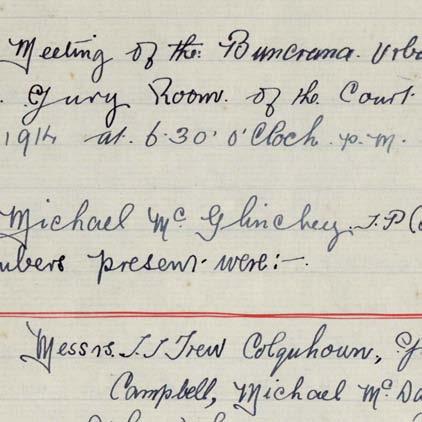 Meeting of the Buncrana Urba
Jury Room. of the Court
1914 at 6.30' o'Clock p.m.
Michael Mc Glinchey. J.P.
mbers present were:-
Messrs. J.J Trew Colquhoun,
Campbell, Michael Mc Da